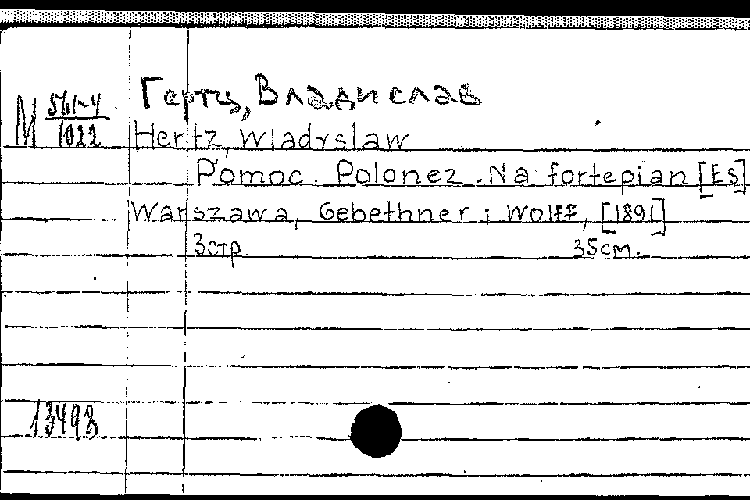 Гертц, Владислав
М 561-4/1022
Hertz, Wladyslaw
Pomoc. Polonez. Na fortepian [Es]
Warszawa, Gebethner i Wolff, [1891]
3 стр. 35 см.
13498